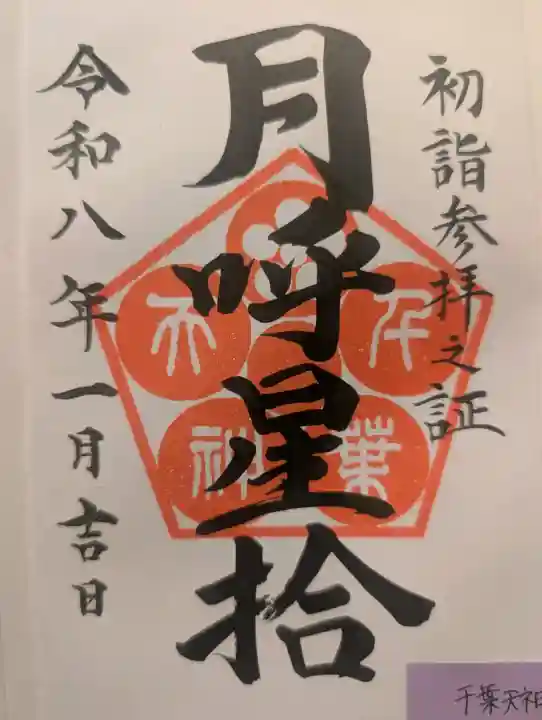 初詣参拝之証
月呼星拾
令和八年一月吉日
千葉
天神
千葉天神